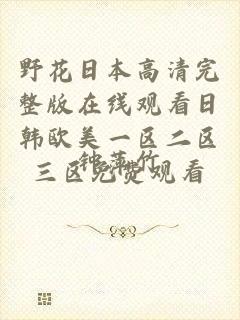 野花日本高清完
整版在线观看日
韩欧美一区二区
三区免费观看
钟萍竹